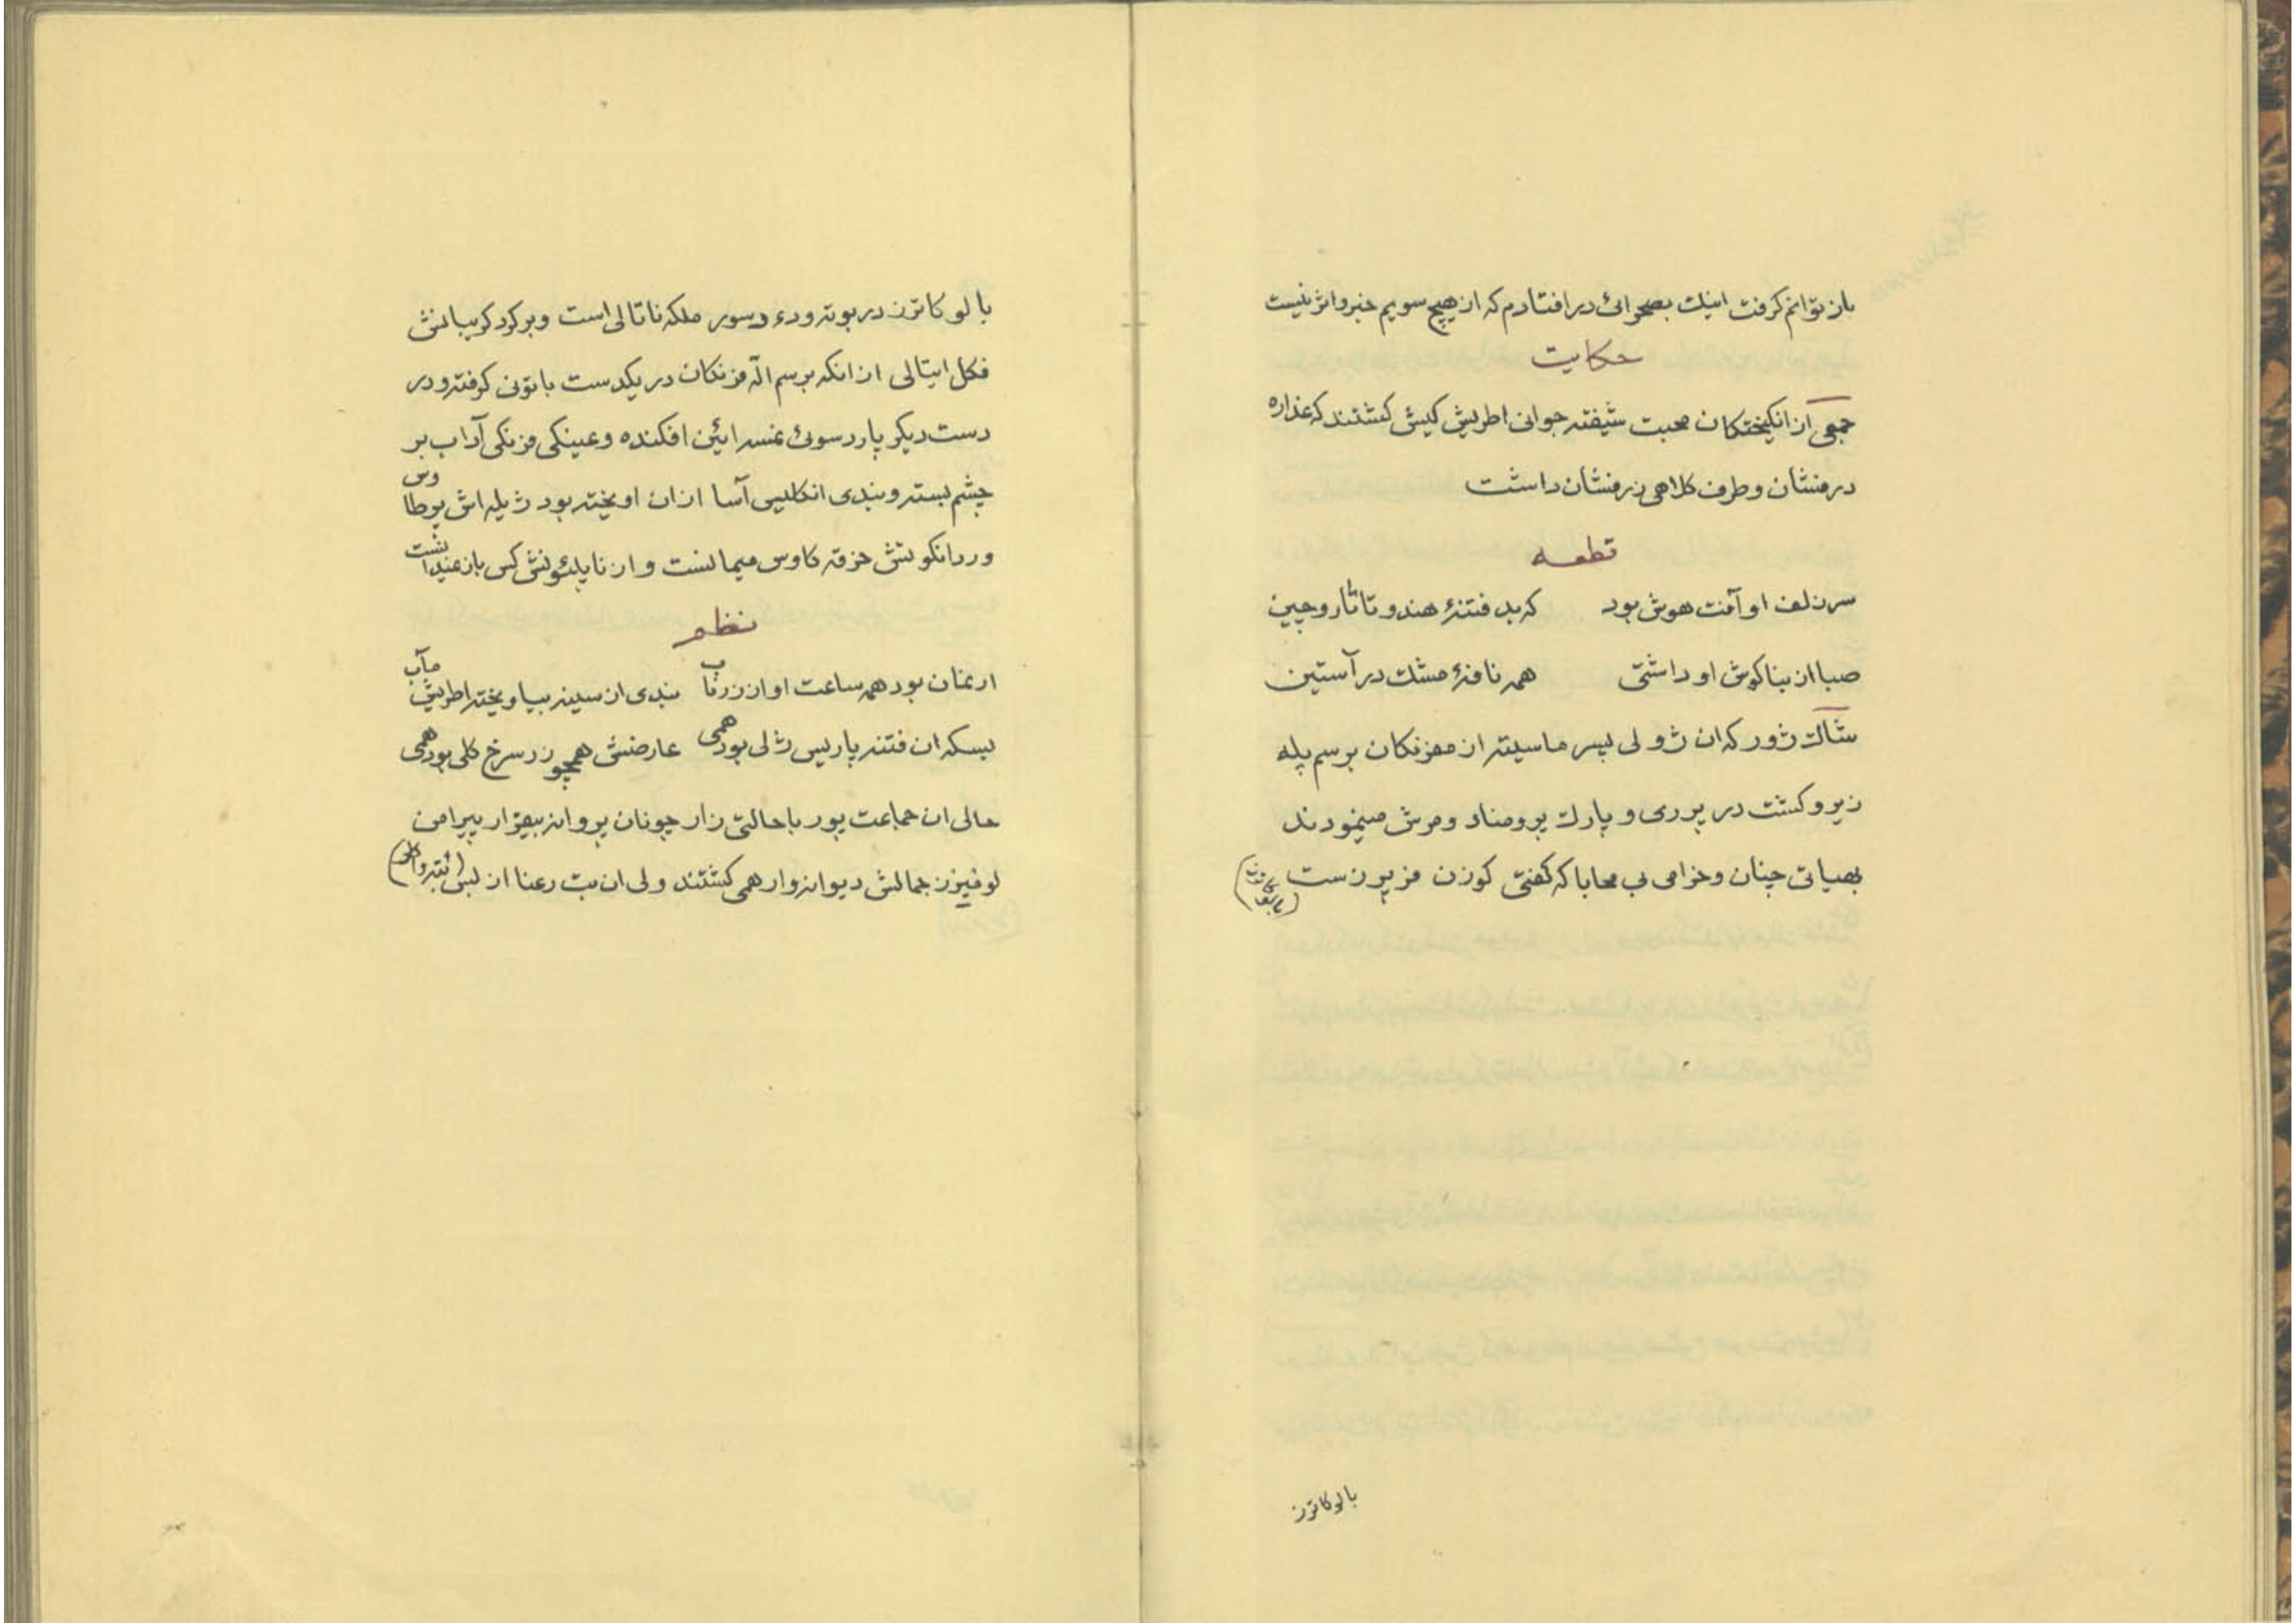 باز توانم کرفت اینک بصحرائی در افتادم که از هیچ سویم خبر و اثر نیست
حکایت
جمعی از انکیختکان محبت شیفته جوانی اطریش کیش کشتند که عذاره
درفشان و طرف کلاهی زرفشان داشت
قطعه
سر زلف او آفت هوش بود که بد فتنهٔ هند و تاتار و چین
صبا از بناکوش او داشتی همه نافهٔ مشک در آستین
شاک ژور که ان ژولی پسر ماسیته از مفرنکان برسم پله
زیر و کشت در پردی و پارک پرومناد و مرش مینمودند
بهیاتی چنان و خرامی بی محابا که کفتی کوزن
بالوکاترز
بالوکاترز در بوته و دسور ملکه ناتالی است و بر کرد کریبانش
فکل ایتالی از انکه برسم الهٔ فرنکان در یکدست باتونی کرفته و در
دست دیکر پاردسوئی افکنده و عینکی فرنکی آداب بر
چشم بسته و بندی انکلیسی آسا از ان اویخته بود ژیله اش بوطاوس
وردانکوتش خرقه کاوس میمانست و از ناپلئونش کس باز نمیدانشت
نظم
ارمغان بود همه ساعت او از زر ناب بندی از سینه بیاویخته اطریش مآب
بسکه ان فتنه پاریس ژلی بود همی عارضش همچو زر سرخ کلی بود همی
حالی ان جماعت پور با حالتی زار چونان پروانه بیقرار پیرامن
لوفیزن جمالش دیوانه وار همی کشتند ولی ان بت رعنا از لبس